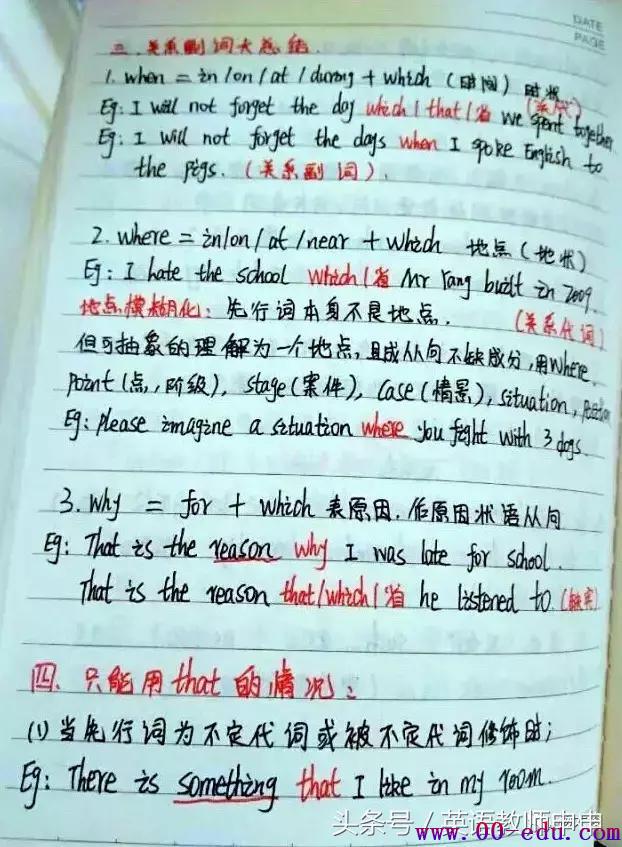 DATE
PAGE
三.关系副词大总结.
1. when = in / on / at / during + which (时间) 时状
Eg: I will not forget the day which / that / 省 we spent together
(关代)
Eg: I will not forget the days when I spoke English to
the pigs. (关系副词).
2. where = in/on/at/near + which 地点(地状)
Eg: I hate the school which/省 Mr Yang built in 2009.
(关系代词)
地点模糊化: 先行词本身不是地点.
但可抽象的理解为一个地点,且成从句不缺成分,用where.
Point(点,阶级), stage(案件), Case(情景), situation, position
Eg: please imagine a situation where you fight with 3 dogs.
3. why = for + which 表原因.作原因状语从句
Eg: That is the reason why I was late for school.
That is the reason that/which/省 he listened to. (缺宾)
四.只能用that的情况:
(1)当先行词为不定代词或被不定代词修饰时;
Eg: There is something that I like in my room.
头条号 / 英语教师申申
www.00-edu.com